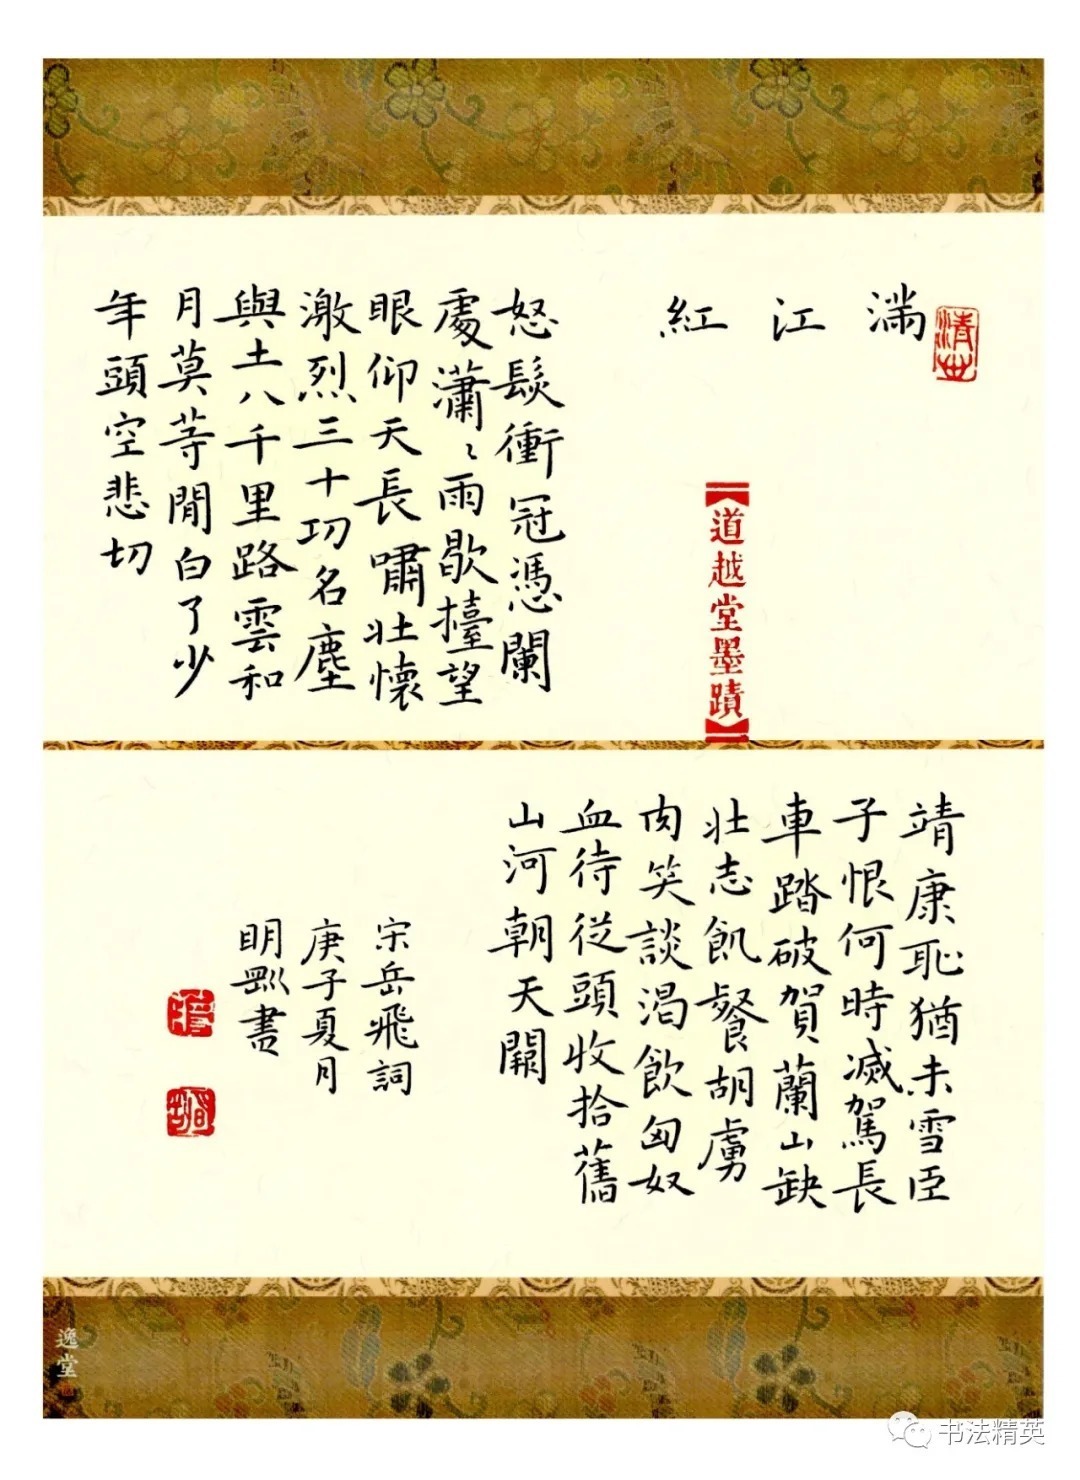 滿江紅
【道越堂墨蹟】
怒髮衝冠憑闌
處瀟〻雨歇擡望
眼仰天長嘯壯懷
激烈三十功名塵
與土八千里路雲和
月莫等閒白了少
年頭空悲切
靖康恥猶未雪臣
子恨何時滅駕長
車踏破賀蘭山缺
壯志飢餐胡虜
肉笑談渴飲匈奴
血待從頭收拾舊
山河朝天闕
宋岳飛詞
庚子夏月
明書
逸堂
书法精英